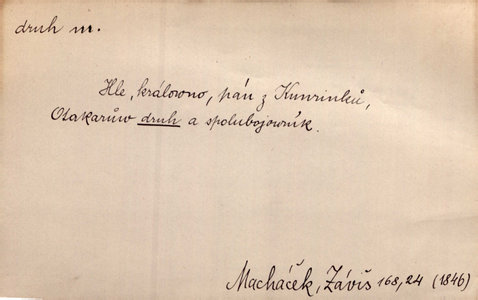 druh m.
Hle, králowno, pán z Kunrinků,
Otakarůw druh a spolubojowník.
Macháček, Záviš 168,24 (1846)